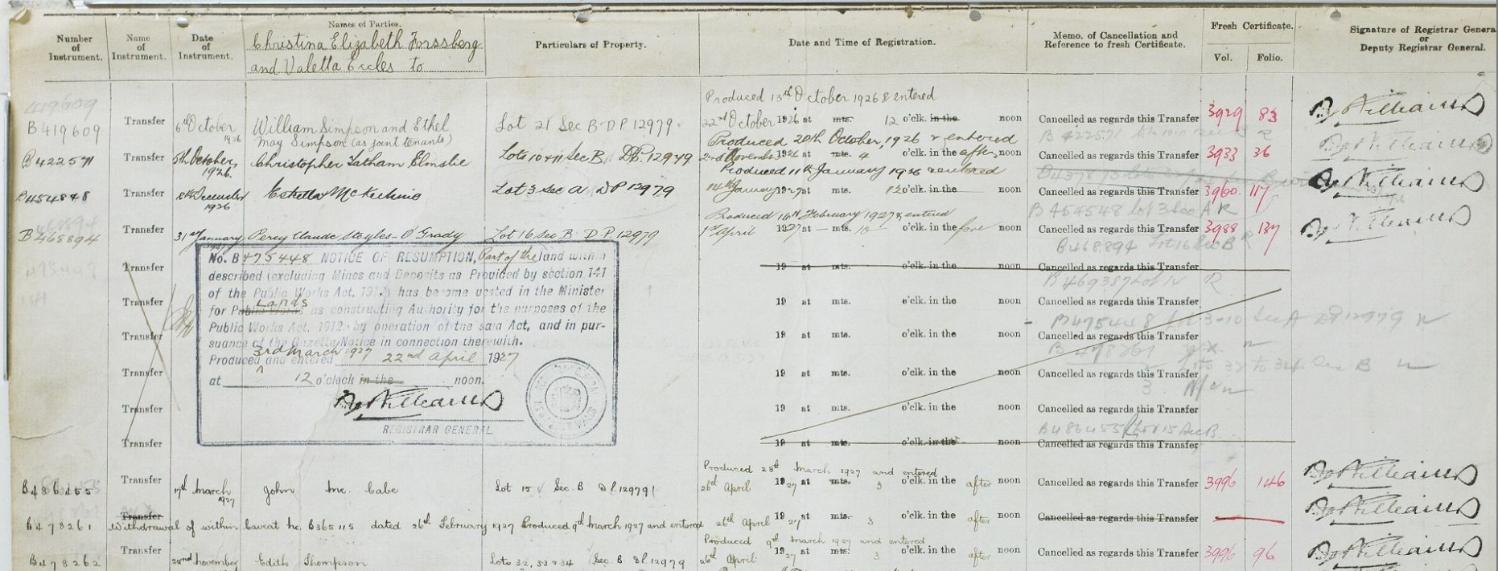 Number of Instrument.
Name of Instrument.
Date of Instrument.
Names of Parties.
Christina Elizabeth Forssberg
and Valetta Eccles to
Particulars of Property.
Date and Time of Registration.
Memo. of Cancellation and Reference to fresh Certificate.
Fresh Certificate.
Vol.
Folio.
Signature of Registrar General or Deputy Registrar General.
Produced 13th October 1926 & entered
B419609 Transfer 6th October 1926 William Simpson and Ethel May Simpson (as joint tenants) Lot 21 Sec B DP 12979 22nd October 1926 at mts. 12 o'clk. in the noon Cancelled as regards this Transfer 3929 83
Produced 20th October, 1926 & entered
B422571 Transfer 5th October, 1926 Christopher Latham Elmslie Lots 10 & 11 Sec B. DP. 12979 2nd November 1926 at mts. 4 o'clk. in the after noon Cancelled as regards this Transfer 3933 36
Produced 11th January 1926 & entered
B454848 Transfer 8th December 1926 McKechnie Lot 3 Sec A DP 12979 14th January 1927 at mts. 12 o'clk. in the noon Cancelled as regards this Transfer 3960 117
B454548 lot 3 Sec A R
Produced 16th February 1927 & entered
B468894 Transfer 31st January Percy Claude Stayles-O'Grady Lot 16 Sec B. DP 12979 1st April 1927 at mts. 10 o'clk. in the fore noon Cancelled as regards this Transfer 3988 137
B468894 Lot 16 Sec B R
No. B475448 NOTICE OF RESUMPTION, (Part of the) land within
described (excluding Mines and Deposits as Provided by section 141
of the Public Works Act, 1912) has become vested in the Minister
for Public Works Lands as constructing Authority for the purposes of the
Public Works Act, 1912, by operation of the said Act, and in pur-
suance of the Gazette Notice in connection therewith.
Produced 3rd March 1927 and entered 22nd April 1927
at 12 o'clock in the noon.
REGISTRAR GENERAL
Transfer 19 at mts. o'clk. in the noon Cancelled as regards this Transfer
Transfer 19 at mts. o'clk. in the noon Cancelled as regards this Transfer
B475448 lot 3-10 Sec A DP 12979
Transfer 19 at mts. o'clk. in the noon Cancelled as regards this Transfer
B478261
Transfer 19 at mts. o'clk. in the noon Cancelled as regards this Transfer
Transfer 19 at mts. o'clk. in the noon Cancelled as regards this Transfer
B486455 Lot 15 Sec B
Transfer 19 at mts. o'clk. in the noon Cancelled as regards this Transfer
Produced 28th March 1927 and entered
B486455 Transfer 17th March 1927 John Mc Cabe Lot 15 Sec. B D.P. 12979 26th April 1927 at mts. 3 o'clk. in the after noon Cancelled as regards this Transfer 3996 146
B478261 Transfer Withdrawal of within Caveat No. B365115 dated 26th February 1927 Produced 9th March 1927 and entered 26th April 1927 at mts. 3 o'clk. in the after noon Cancelled as regards this Transfer
Produced 9th March 1927 and entered
B478262 Transfer 22nd November Edith Thompson Lots 32, 33 & 34 Sec. B D.P. 12979 26th April 1927 at mts. 3 o'clk. in the after noon Cancelled as regards this Transfer 3996 96